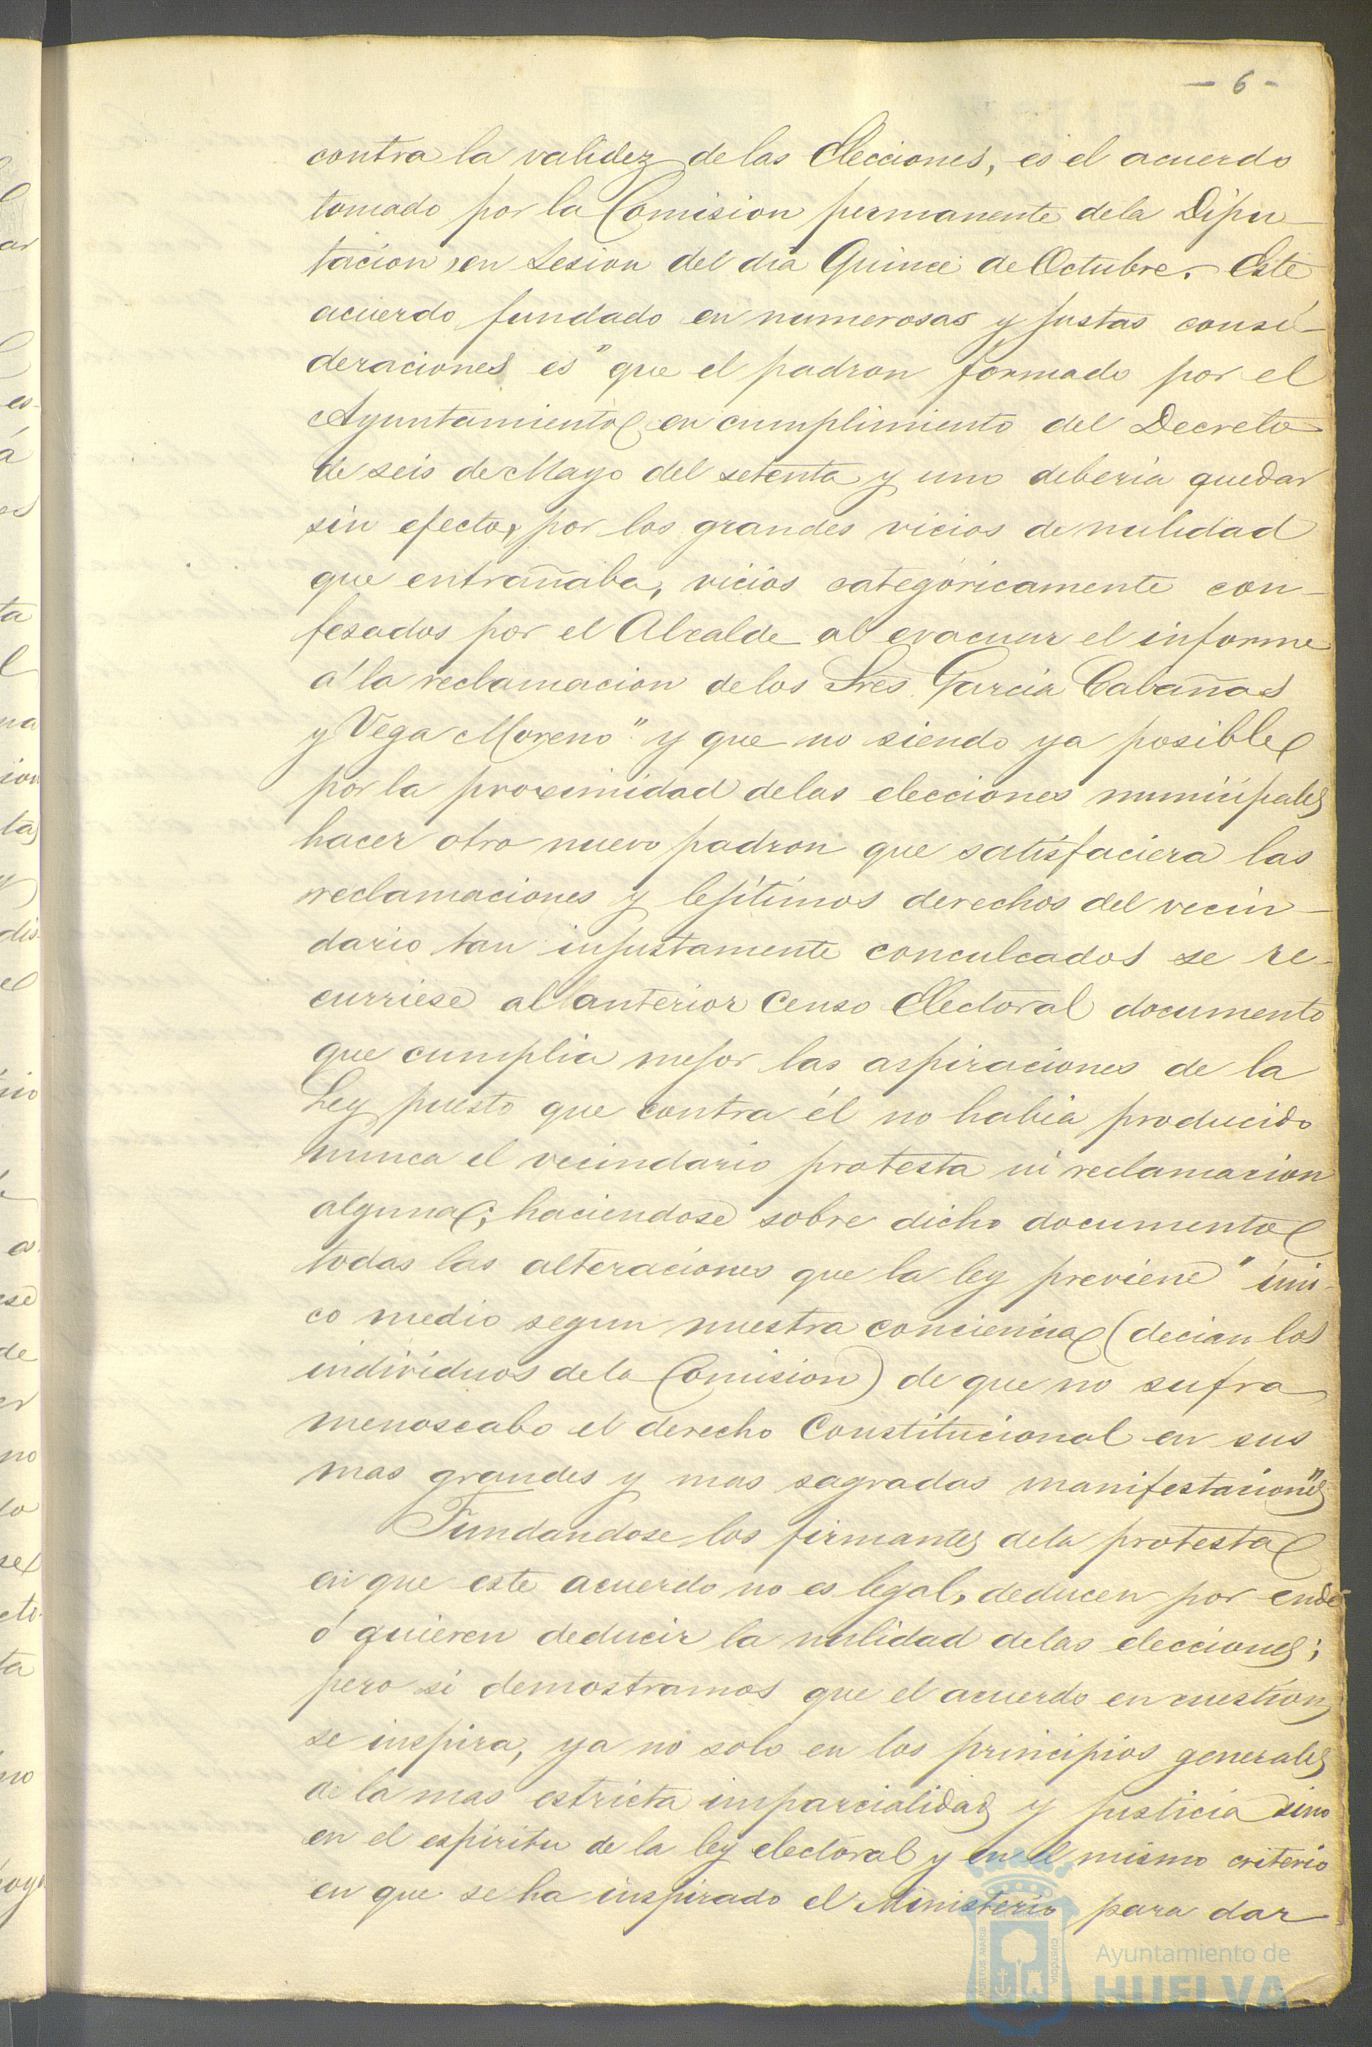 - 6 -
contra la validez de las Elecciones, es el acuerdo
tomado por la Comision permanente dela Dipu-
tacion, en Sesion del dia Quince de Octubre. Este
acuerdo fundado en numerosas y justas consi-
deraciones es "que el padron formado por el
Ayuntamiento en cumplimiento del Decreto
de seis de Mayo del setenta y uno deberia quedar
sin efecto, por los grandes vicios de nulidad
que entrañaba, vicios categóricamente con-
fesados por el Alcalde al evacuar el informe
á la reclamacion delos Sres. Garcia Cabañas
y Vega Moreno" y que no siendo ya posible
por la proximidad delas elecciones municipales
hacer otro nuevo padron que satisfaciera las
reclamaciones y lejítimos derechos del vecin-
dario tan injustamente conculcados se re-
curriese al anterior Censo Electoral documento
que cumplia mejor las aspiraciones de la
Ley puesto que contra él no habia producido
nunca el vecindario protesta ni reclamacion
alguna; haciendose sobre dicho documento
todas las alteraciones que la ley previene "úni-
co medio segun nuestra conciencia (decian los
individuos dela Comision) de que no sufra
menoscabo el derecho Constitucional en sus
mas grandes y mas sagradas manifestaciones"
Fundandose los firmantes dela protesta
en que este acuerdo no es legal, deducen por ende
ó quieren deducir la nulidad delas elecciones;
pero si demostramos que el acuerdo en cuestion
se inspira, ya no solo en los principios generales
de la mas estricta imparcialidad y justicia sino
en el espíritu de la ley electoral y en el mismo criterio
en que se ha inspirado el Ministerio para dar
Ayuntamiento de
HUELVA